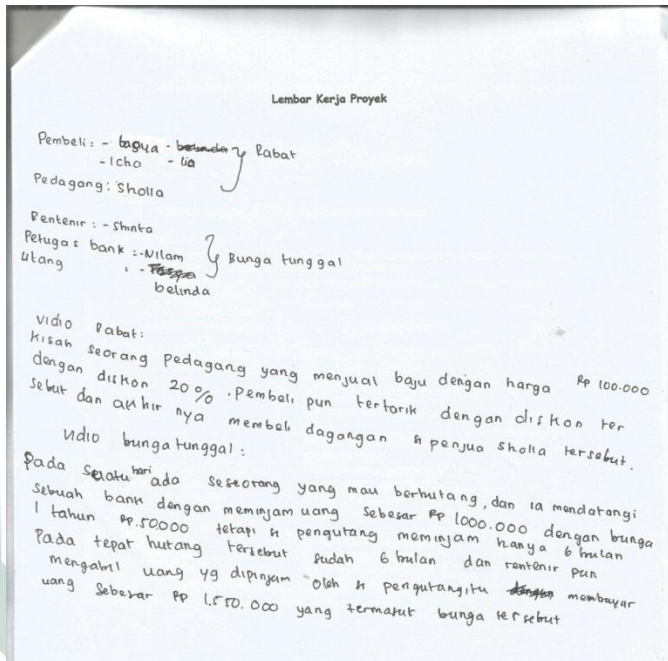 Lembar Kerja Proyek
Pembeli : - bagya - belinda } Rabat
- Icha - lia
Pedagang : Sholla
Rentenir : - Shinta
Petugas bank : - Nilam } Bunga tunggal
Utang : -
belinda
Vidio Rabat :
Kisah seorang pedagang yang menjual baju dengan harga Rp 100.000
dengan diskon 20 % . Pembeli pun tertarik dengan diskon ter
sebut dan akhir nya membeli dagangan si penjua Sholla tersebut.
Vidio bunga tunggal :
Pada suatu hari ada seseorang yang mau berhutang, dan ia mendatangi
sebuah bank dengan meminjam uang sebesar Rp 1000.000 dengan bunga
1 tahun Rp.50.000 tetapi si pengutang meminjam hanya 6 bulan
Pada tepat hutang tersebut sudah 6 bulan dan rentenir pun
mengabil uang yg dipinjam oleh si pengutang itu membayar
uang sebesar Rp 1.550.000 yang termasut bunga tersebut